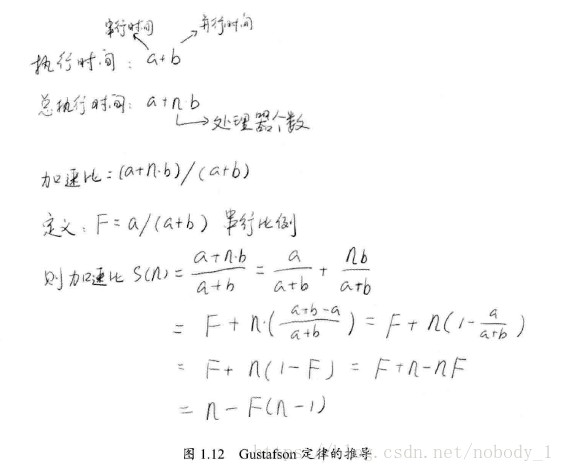 串行时间 并行时间
执行时间: a+b
总执行时间: a+n·b
处理器个数
加速比=(a+n·b)/(a+b)
定义: F=a/(a+b) 串行比例
则加速比 S(n)= \frac{a+n·b}{a+b} = \frac{a}{a+b} + \frac{nb}{a+b}
= F + n·(\frac{a+b-a}{a+b}) = F + n(1-\frac{a}{a+b})
= F + n(1-F) = F+n-nF
= n-F(n-1)
图 1.12 Gustafson 定律的推导
https://blog.csdn.net/nobody_1